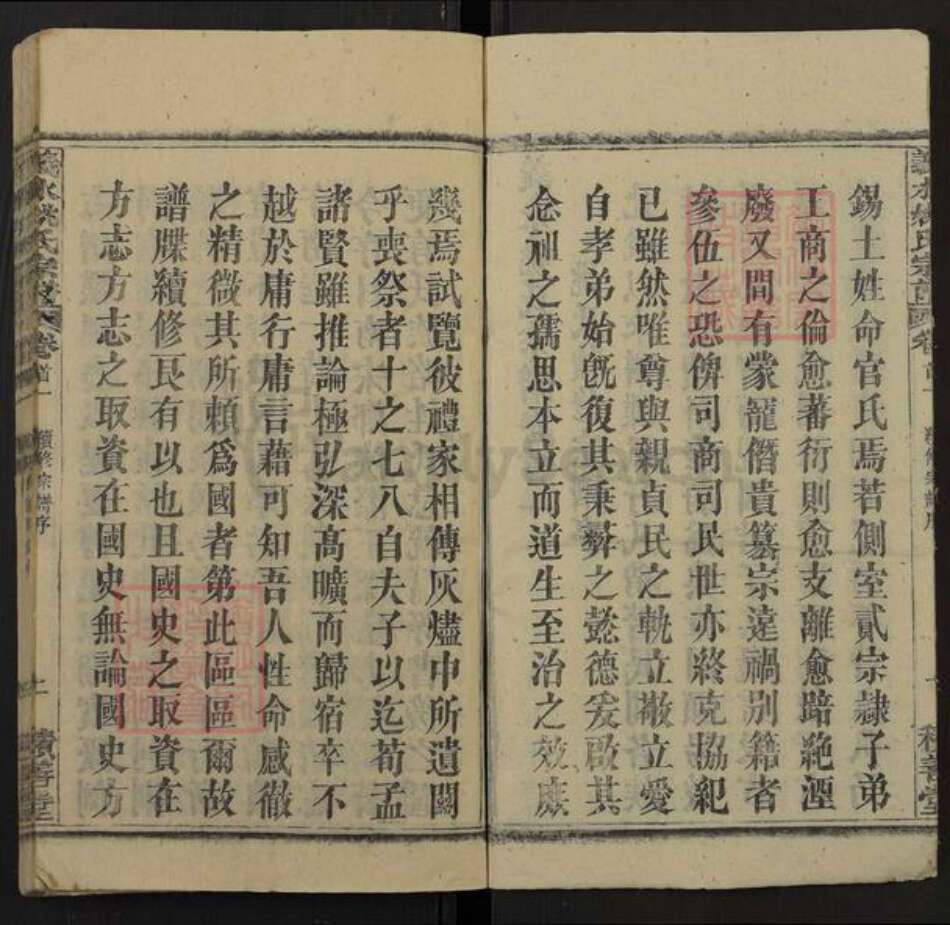 錫土姓命官氏焉若側室貳宗隷子弟
工商之倫愈蕃衍則愈支離愈踣絶湮
廢又間有蒙寵僭貴篡宗遠禍别籍者
參伍之恐俾司商司民世亦終克協紀
已雖然唯尊與親貞民之軌立敬立愛
自孝弟始旣復其秉彛之懿德爰啟其
念祖之孺思本立而道生至治之效庶
幾焉試覽彼禮家相傳灰燼中所遺關
乎喪祭者十之七八自夫子以迄荀孟
諸賢雖推論極弘深髙曠而歸宿卒不
越於庸行庸言藉可知吾人性命感徹
之精微其所頼爲國者第此區區爾故
譜牒續修艮有以也且國史之取資在
方志方志之取資在國史無論國史方
水洪氏宗譜 卷首一 續修宗譜序 二 積善堂